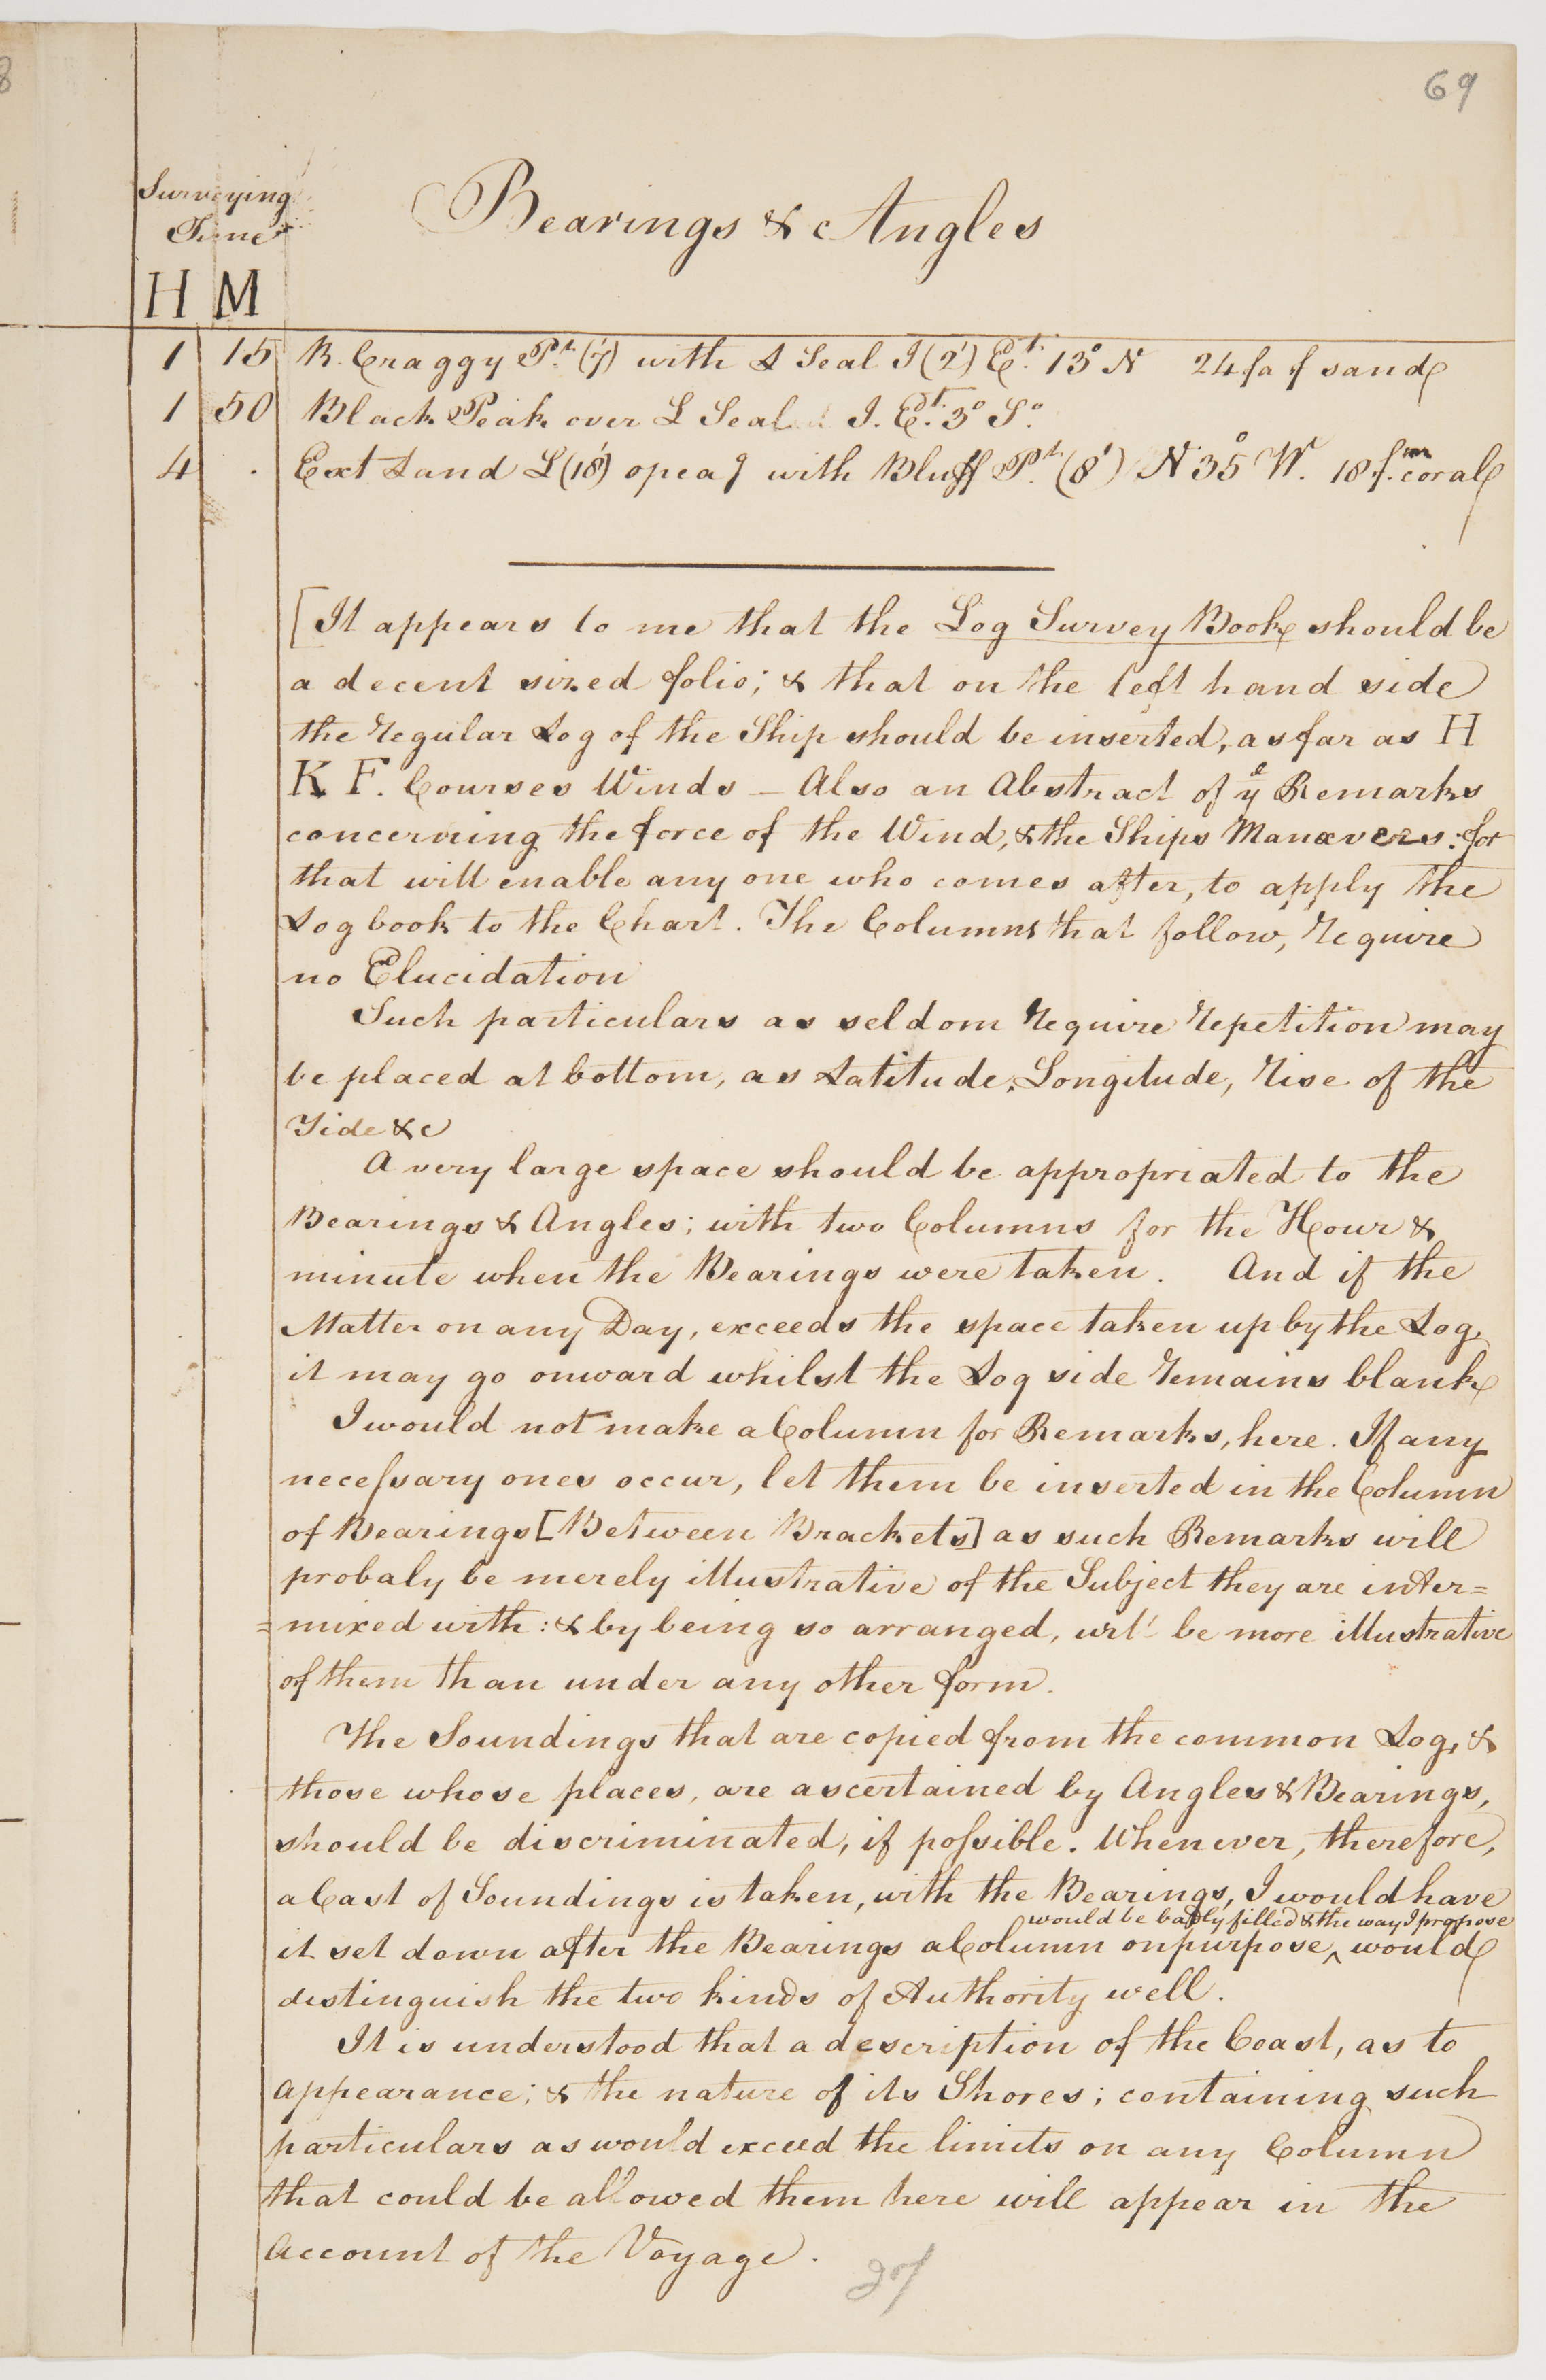 69
Surveying
Time
Bearings & Angles
H M
1 15 R. Craggy Pt. (7') with L Seal I (2') Et. 13° N 24 fa f sand
1 50 Black Peak over L Seal I. Et. 3° So.
4 . Ext Land L (18') opeag with Bluff Pt. (8') N 35° W. 18 fm. coral
[It appears to me that the Log Survey Book should be
a decent sized folio; & that on the left hand side
the regular Log of the Ship should be inserted, as far as H
K F. Courses Winds _ Also an Abstract of ye Remarks
concerning the force of the Wind, & the Ships Manœvers: for
that will enable any one who comes after, to apply the
Log book to the Chart. The Columns that follow, require
no Elucidation
Such particulars as seldom require repetition may
be placed at bottom, as Latitude, Longitude, rise of the
Tide &c
A very large space should be appropriated to the
Bearings & Angles; with two Columns for the Hour &
minute when the Bearings were taken. And if the
Matter on any Day, exceeds the space taken up by the Log,
it may go onward whilst the Log side remains blank
I would not make a Column for Remarks, here. If any
necessary ones occur, let them be inserted in the Column
of Bearings [Between Brackets] as such Remarks will
probaly be merely illustrative of the Subject they are inter=
=mixed with: & by being so arranged, will be more illustrative
of them than under any other form.
The Soundings that are copied from the common Log, &
those whose places, are ascertained by Angles & Bearings,
should be discriminated, if possible. Whenever, therefore,
a Cast of Soundings is taken, with the Bearings, I would have
would be badly filled & the way I propose
it set down after the Bearings a Column on purpose ^ would
distinguish the two kinds of Authority well.
It is understood that a description of the Coast, as to
appearance; & the nature of its Shores; containing such
particulars as would exceed the limits on any Column
that could be allowed them here will appear in the
Account of the Voyage.